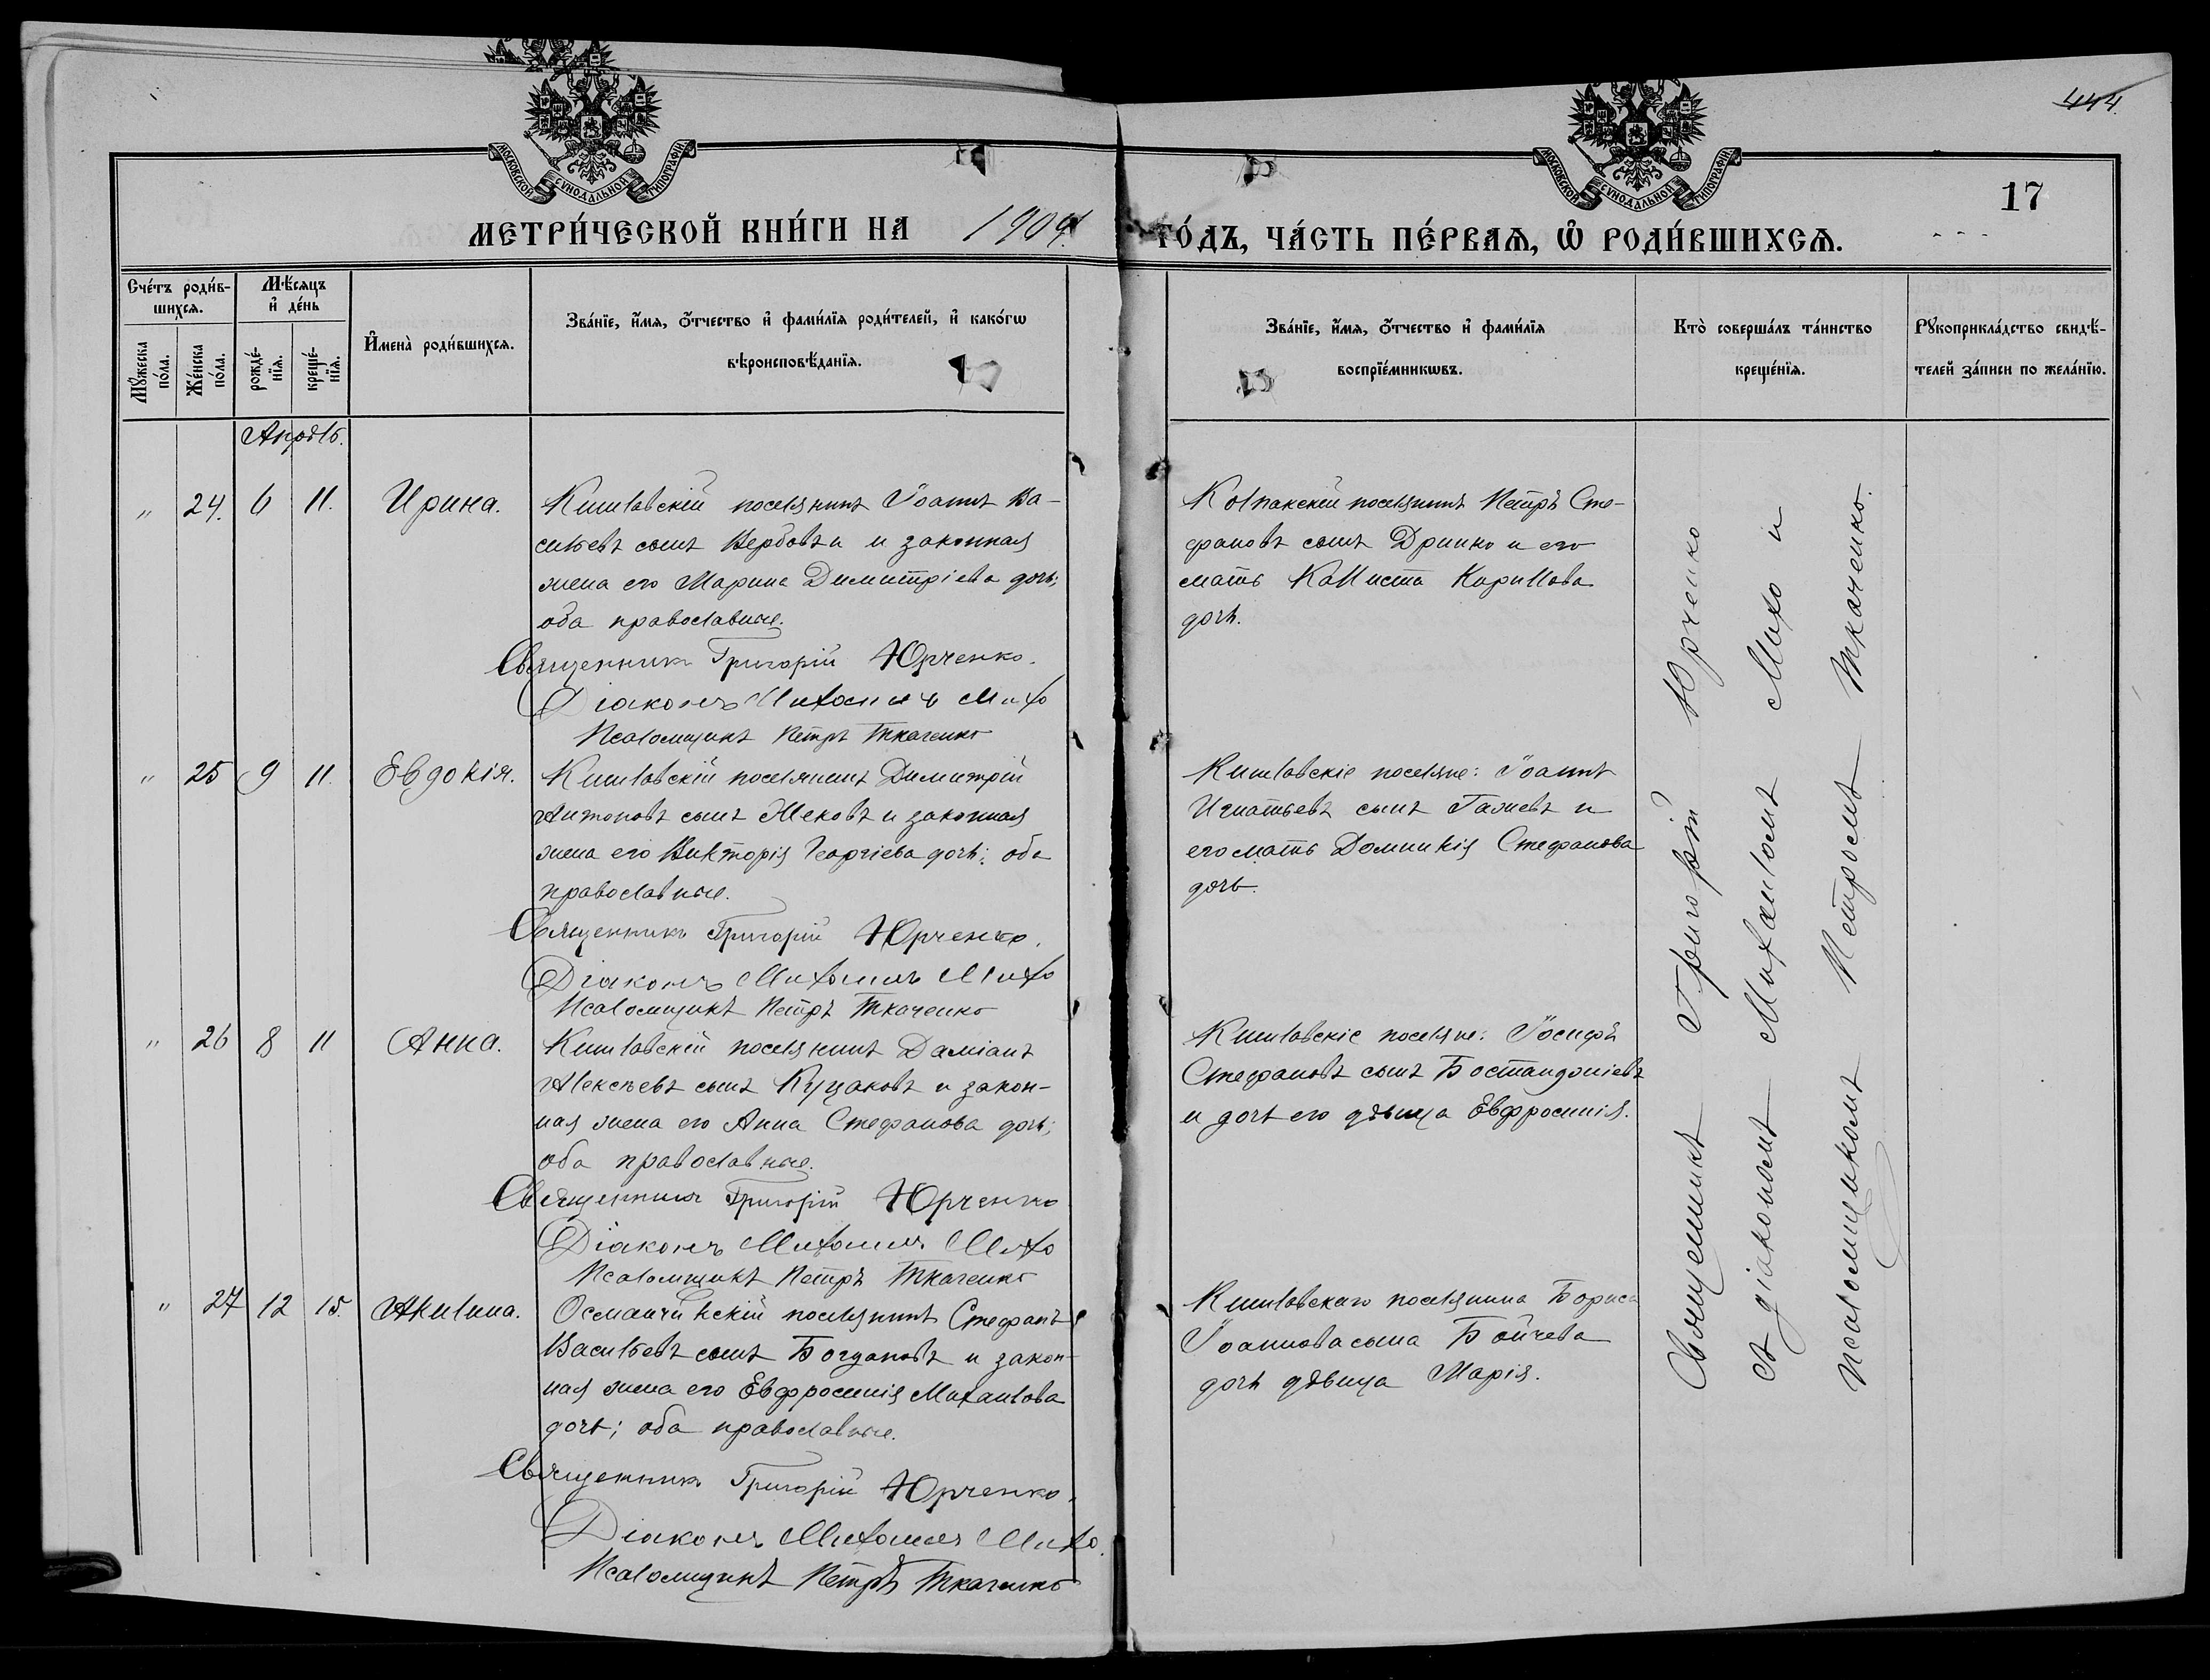 444.
МОСКОВСКОЙ СѴНОДАЛЬНОЙ ТИПОГРАФІИ
МОСКОВСКОЙ СѴНОДАЛЬНОЙ ТИПОГРАФІИ
17
МЕТРИ́ЧЕСКОЙ КНИ́ГИ НА 1909 ГО́ДЪ, ЧА́СТЬ ПЕ́РВАѦ, Ѽ РОДИ́ВШИХСѦ.
Сче́тъ роди́в-
шихсѧ.
Мꙋ́жеска по́ла.
Же́нска по́ла.
Мѣ́сѧцъ
и҆ де́нь
рожде́-
нїѧ.
креще́-
нїѧ.
И҆мена̀ роди́вшихсѧ.
Зва́нїе, и҆́мѧ, ѻ҆́тчество и҆ фами́лїѧ роди́телей, и҆ како́гѡ
вѣроисповѣ́данїѧ.
Зва́нїе, и҆́мѧ, ѻ҆́тчество и҆ фами́лїѧ
воспрїе́мникѡвъ.
Кто̀ соверша́лъ та́инство
креще́нїѧ.
Рꙋкоприкла́дство свидѣ́-
телей за́писи по жела́нїю.
Апрѣль.
" 24. 6 11. Ирина.
Кишловскій поселянинъ Іоаннъ Ва-
сильевъ сынъ Вербовъ и законная
жена его Марина Димитріева дочь;
оба православные.
Священникъ Григорій Юрченко.
Діаконъ Михаилъ Михо
Псаломщикъ Петръ Ткаченко
Колпакскій поселянинъ Петръ Сте-
фановъ сынъ Дринко и его
мать Каллиста Кириллова
дочь.
" 25 9 11. Евдокія.
Кишловскій поселянинъ Димитрій
Антоновъ сынъ Жековъ и законная
жена его Викторія Георгіева дочь; оба
православные.
Священникъ Григорій Юрченко.
Діаконъ Михаилъ Михо
Псаломщикъ Петръ Ткаченко
Кишловскіе поселяне: Іоаннъ
Игнатьевъ сынъ Гажевъ и
его мать Домникія Стефанова
дочь.
" 26 8 11 Анна.
Кишловскій поселянинъ Даміанъ
Алексѣевъ сынъ Куцаковъ и закон-
ная жена его Анна Стефанова дочь;
оба православные.
Священникъ Григорій Юрченко
Діаконъ Михаилъ Михо
Псаломщикъ Петръ Ткаченко
Кишловскіе поселяне: Іосифъ
Стефановъ сынъ Бостанджіевъ
и дочь его дѣвица Евфросинія.
" 27 12 15. Акилина.
Поселянинъ Стефанъ
Васильевъ сынъ Богдановъ и закон-
ная жена его Евфросинія Михаилова
дочь; оба православные.
Священникъ Григорій Юрченко.
Діаконъ Михаилъ Михо.
Псаломщикъ Петръ Ткаченко
Кишловскаго поселянина Бориса
Іоаннова сына Бойчева
дочь дѣвица Марія.
Священникъ Григорій Юрченко
съ діакономъ Михаиломъ Михо и
псаломщикомъ Петромъ Ткаченко.